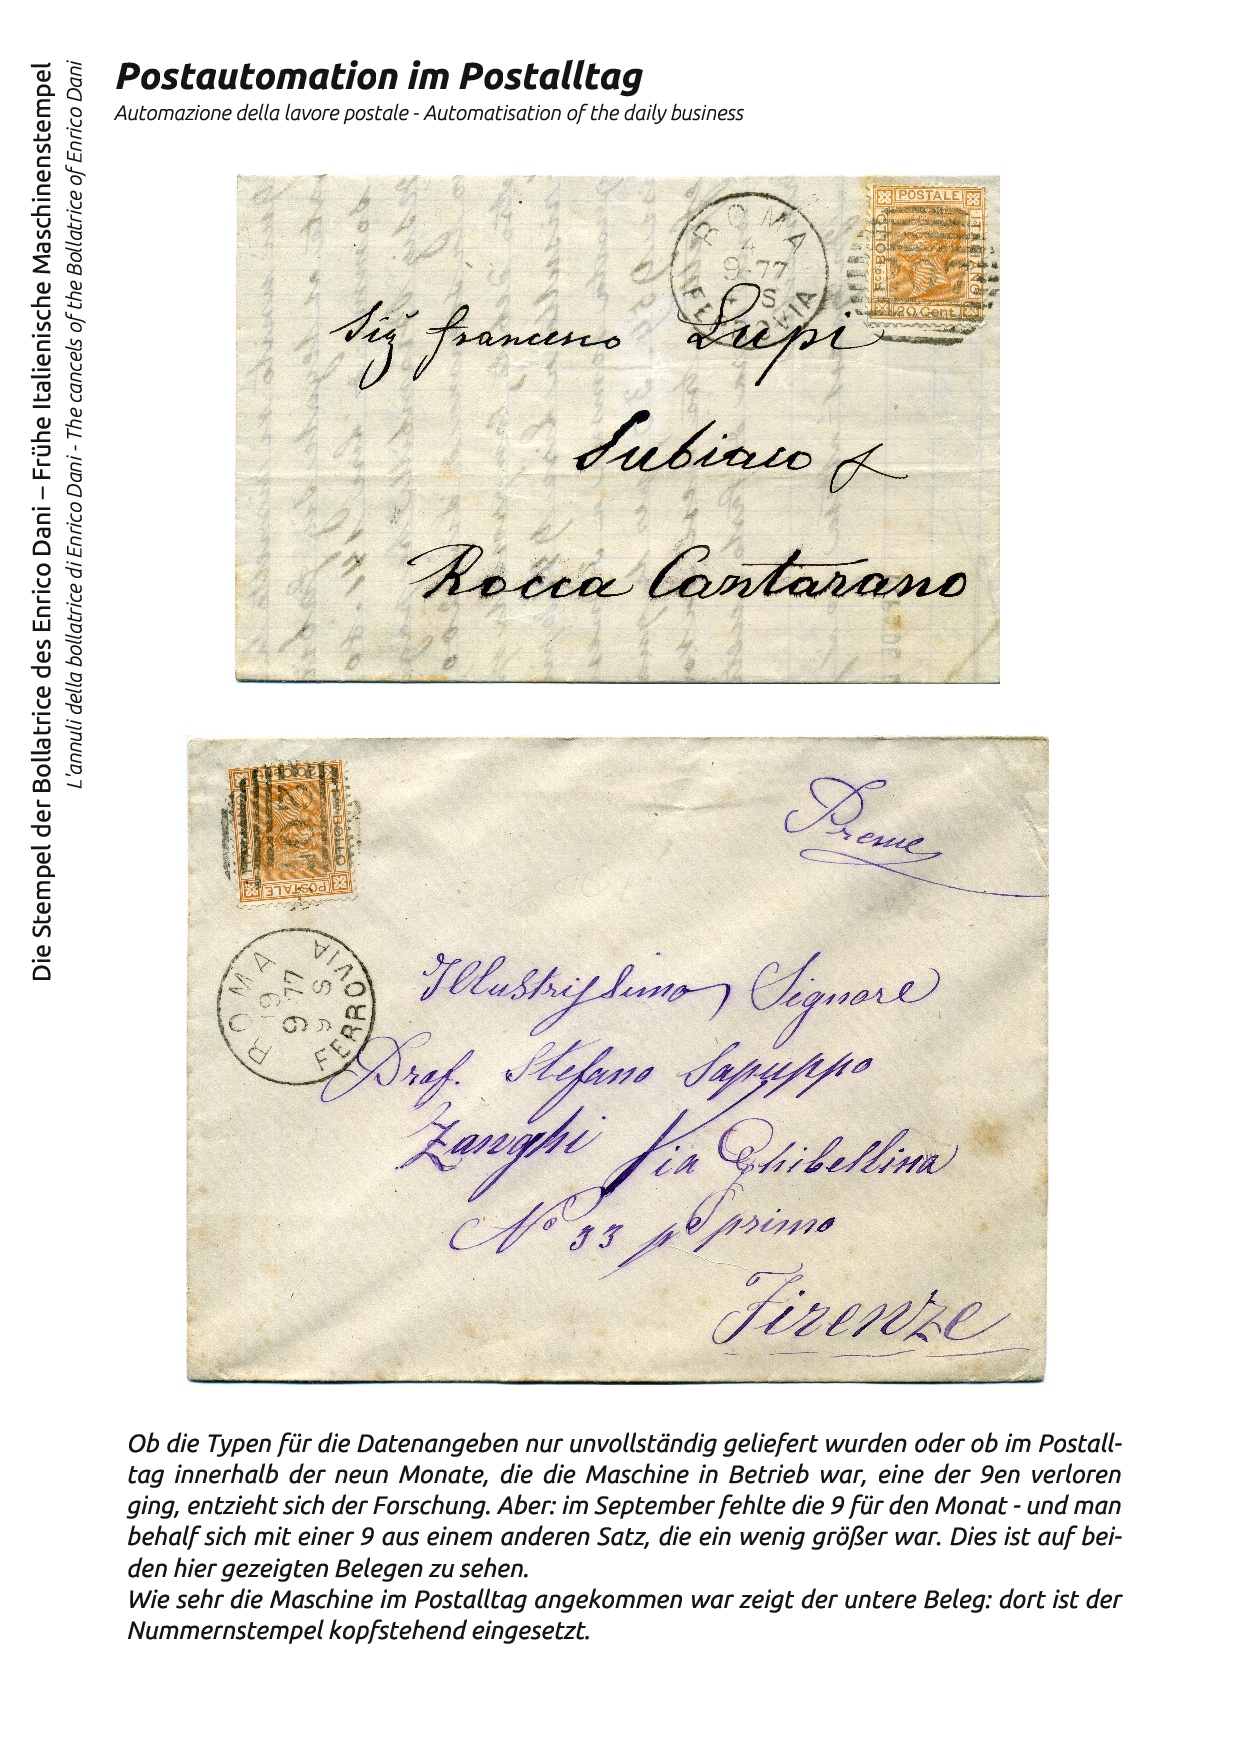 Die Stempel der Bollatrice des Enrico Dani – Frühe Italienische Maschinenstempel
L'annuli della bollatrice di Enrico Dani - The cancels of the Bollatrice of Enrico Dani
Postautomation im Postalltag
Automazione della lavore postale - Automatisation of the daily business
ROMA
4
9·77
S
FERROVIA
POSTALE
Fco BOLLO
ITALIANO
20 Cent
Sig Francesco Lupi
Subiaco
Rocca Cantarano
BOLLO
POSTALE
Preme
ROMA
19
9 77
6 S
FERROVIA
Illustrissimo Signore
Prof. Stefano Sapuppo
Zanghi Via Ghibellina
No 33 primo
Firenze
Ob die Typen für die Datenangeben nur unvollständig geliefert wurden oder ob im Postall-
tag innerhalb der neun Monate, die die Maschine in Betrieb war, eine der 9en verloren
ging, entzieht sich der Forschung. Aber: im September fehlte die 9 für den Monat - und man
behalf sich mit einer 9 aus einem anderen Satz, die ein wenig größer war. Dies ist auf bei-
den hier gezeigten Belegen zu sehen.
Wie sehr die Maschine im Postalltag angekommen war zeigt der untere Beleg: dort ist der
Nummernstempel kopfstehend eingesetzt.